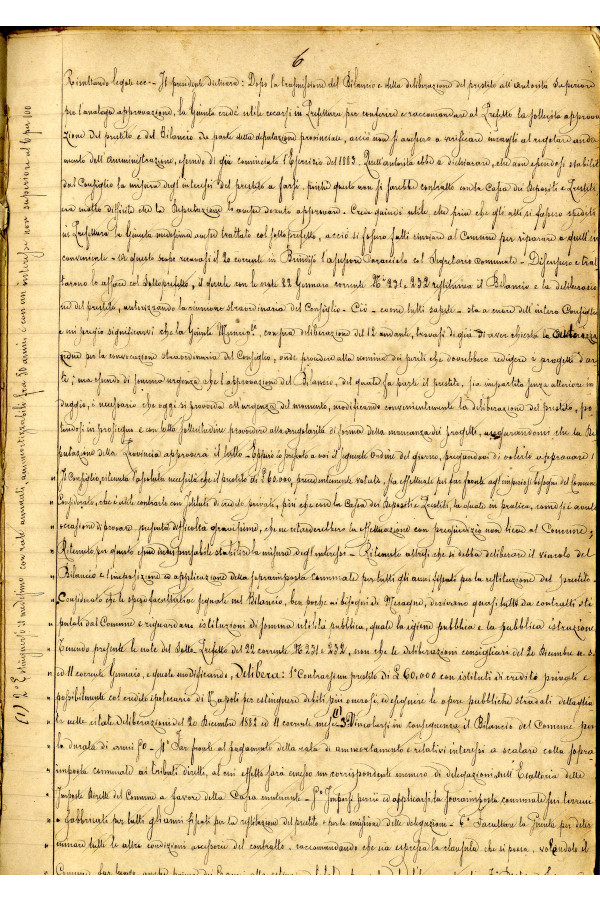 6
Risultando legale ecc - Il presidente dichiara: Dopo la trasmissione del Bilancio e della deliberazione del prestito all'Autorità Superiore
per l'analoga approvazione, la Giunta credè utile recarsi in Prefettura per conferire e raccomandare al Prefetto la sollecita approva
zione del prestito e del Bilancio da parte della deputazione provinciale, acciò non si avessero a verificare incagli al regolare anda
mento dell'Amministrazione, essendo di già cominciato l'Esercizio del 1883. Quell'autorità ebbe a dichiarare, che non essendosi stabilita
dal Consiglio la misura degli interessi del prestito a farsi, poichè questo non si farebbe contratto con la Cassa dei Depositi e Prestiti
era molto difficile che la Deputazione lo avesse dovuto approvare. Creda quindi utile, che pria che gli atti si fossero spediti
in Prefettura la Giunta medesima avesse trattato col sottoprefetto, acciò si fossero fatti rinviare al Comune per riparare a quell'in
conveniente - A questo scopo recavasi il 20 corrente in Brindisi l'assessore col Segretario comunale - Discussero e trat
tarono lo affare col Sottoprefetto, il quale con le note 22 Gennaro corrente N.i 231 e 232 restituiva il Bilancio e la deliberazio
ne del prestito, autorizzando la riunione straordinaria del Consiglio - Ciò - come tutti sapete - sta a cuore dell'intero Consiglio
e mi pregio significarvi che la Giunta Municip.le, con sua deliberazione del 12 andante, trovasi di già di aver chiesta la autorizza
zione per la convocazione straordinaria del Consiglio, onde procedere alla nomina dei periti che dovrebbero redigere i progetti d'ar
te; ma essendo di somma urgenza che l'approvazione del Bilancio, del quale fa parte il prestito, sia impartita senza ulteriore in
duggio, è necessario che oggi si provveda all'urgenza del momento, modificando convenientemente la deliberazione del prestito, po
tendosi in prosieguo e con tutta sollecitudine provvedere alla regolarità di forma della mancanza dei progetti, augurandomi che la De
putazione della Provincia approverà il tutto - Eppure io presento a voi il seguente ordine del giorno, pregandovi di volerlo approvare:
Il Consiglio, ritenuta l'assoluta necessità che il prestito di £ 60,000, precedentemente votato, sia effettuato per far fronte agli impegni e bisogni del Comune
Considerato, che è utile contrarlo con Istituti di credito privati, più che con la Cassa dei Depositi e Prestiti, la quale in pratica, come si è avuto
occasione di provare, presenta difficoltà gravissime, che ne ritarderebbero la effettuazione con pregiudizio non lieve al Comune;
Ritenuto per questo essere indispensabile stabilire la misura degl'interessi - Ritenuto altresì che si debba deliberare il vincolo del
Bilancio e l'imposizione ed applicazione della sovraimposta comunale per tutti gli anni fissati per la restituzione del prestito -
Considerato che le spese facoltative segnate nel Bilancio, ben poche ai bisogni di Mesagne, derivano quasi tutte da contratti sti
pulati dal Comune e riguardano istituzioni di somma utilità pubblica, quali la igiene pubblica e la pubblica istruzione
Tenendo presente le note del Sotto Prefetto del 22 corrente N.i 231 e 232, non che le deliberazioni consigliari del 20 Dicembre u. s.
ed 11 corrente Gennaio, e quelle modificando, Delibera: 1° Contrarre un prestito di £ 60,000 con istituti di credito privati e
possibilmente col credito ipotecario di Napoli per estinguere debiti più onerosi, ed eseguire le opere pubbliche stradali dettaglia
te nelle citate deliberazioni del 20 Dicembre 1882 ed 11 corrente mese (1) 3° Vincolarsi in conseguenza il Bilancio del Comune per
la durata di anni 50 - 4° Far fronte al pagamento della rata di ammortamento e relativi interessi a scalare colla sovra
imposta comunale ai tributi diretti, al cui effetto sarà emesso un corrispondente numero di delegazioni sull'Esattoria delle
Imposte dirette del Comune a favore della Cassa mutuante - 5° Imporsi perciò ed applicarsi la sovraimposta comunale sui terreni
e fabbricati per tutti gli anni fissati per la restituzione del prestito e per la emissione delle delegazioni - 6° Facultare la Giunta per deter
minare tutte le altre condizioni accessorie del contratto, raccomandando che sia espressa la clausola che si possa, volendolo il
(1) 2° Eseguirsi il medesimo con rate annuali, ammortizzabile fra 50 anni, e con un interesse non superiore al 6 per 100